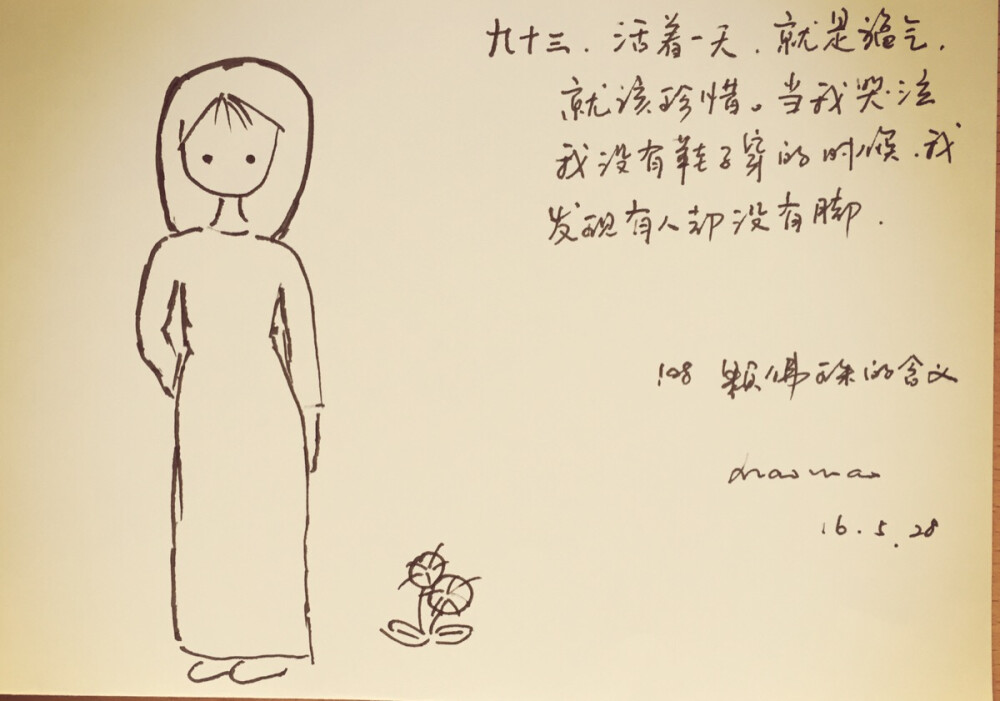 九十三. 活着一天. 就是福气.
就该珍惜。当我哭泣
我没有鞋子穿的时候. 我
发现有人却没有脚.
108 颗佛珠的含义
maomao
16.5.28